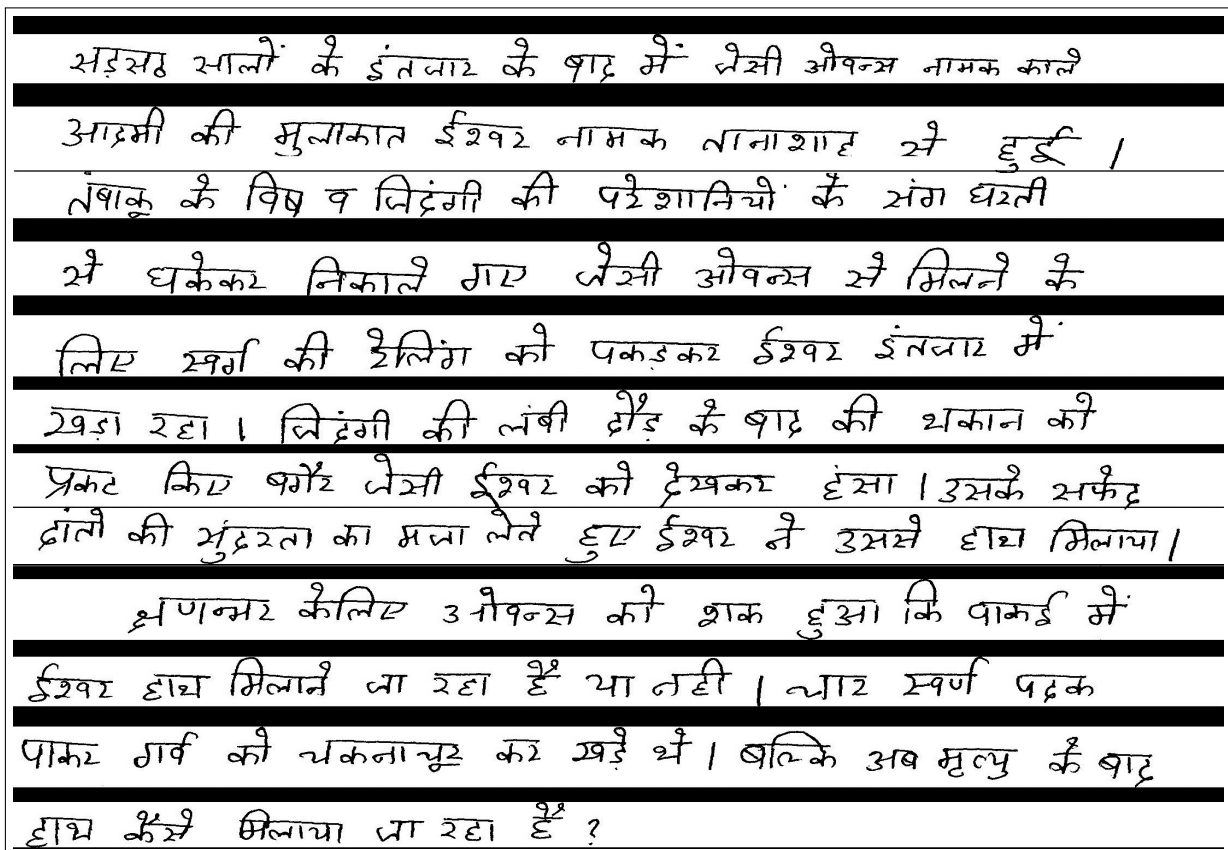 सड़सठ सालों के इंतजार के बाद में जेसी ओवन्स नामक काले
आदमी की मुलाकात ईश्वर नामक तानाशाह से हुई ।
तंबाकू के विष व जिदंगी की परेशानियों के संग धरती
से धकेकर निकाले गए जेसी ओवन्स से मिलने के
लिए स्वर्ग की रेलिंग को पकड़कर ईश्वर इंतजार में
खड़ा रहा । जिदंगी की लंबी दौड़ के बाद की थकान को
प्रकट किए बगैर जेसी ईश्वर को देखकर हंसा । उसके सफेद
दांतो की सुंदरता का मजा लेते हुए ईश्वर ने उससे हाथ मिलाया।
क्षणभर केलिए ओवन्स को शक हुआ कि वाकई में
ईश्वर हाथ मिलाने जा रहा है या नही । चार स्वर्ण पदक
पाकर गर्व को चकनाचूर कर खड़े थे । बल्कि अब मृत्यु के बाद
हाथ कैसे मिलाया जा रहा है ?